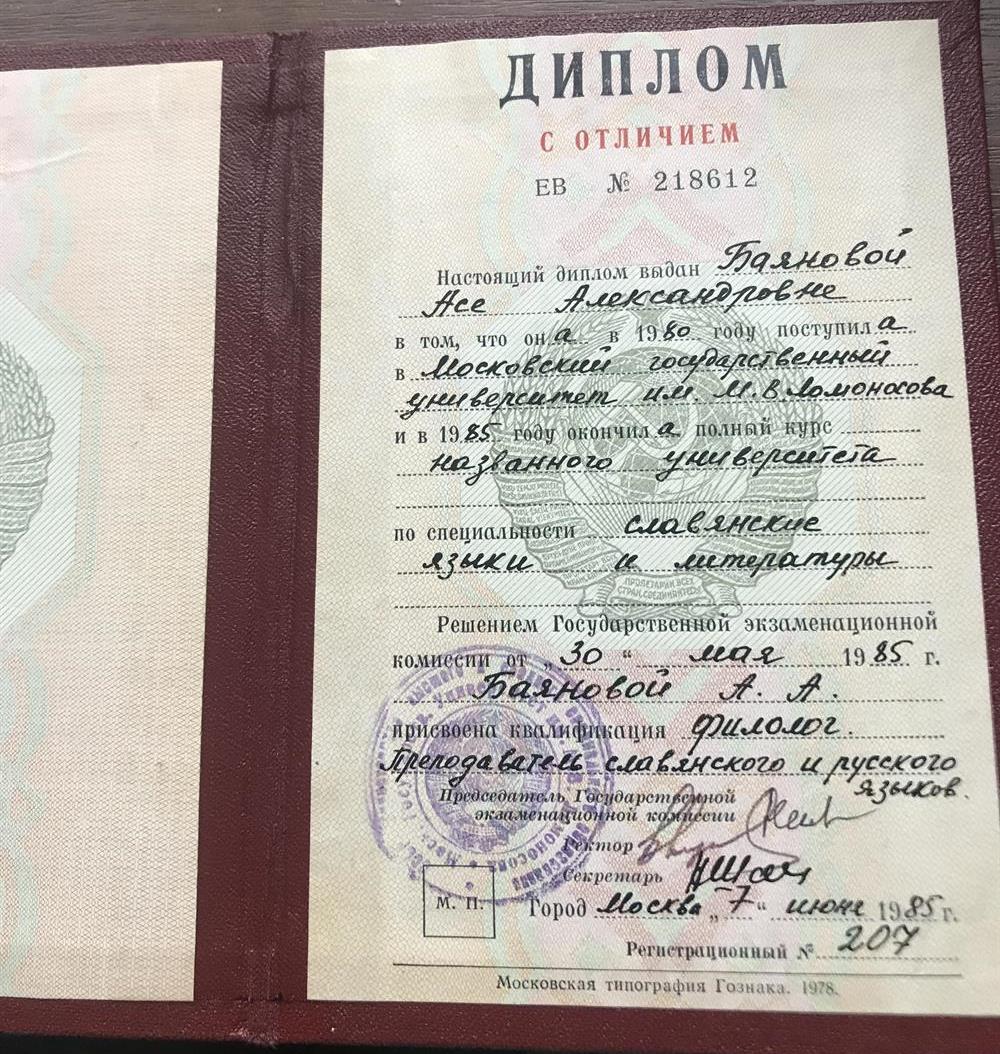 ДИПЛОМ
С ОТЛИЧИЕМ
ЕВ № 218612
Настоящий диплом выдан Баяновой
Асе Александровне
в том, что она в 1980 году поступила
в Московский государственный
университет им. М.В.Ломоносова
и в 1985 году окончила полный курс
названного университета
по специальности славянские
языки и литературы
ПРОЛЕТАРИИ ВСЕХ
СТРАН, СОЕДИНЯЙТЕСЬ!
Решением Государственной экзаменационной
комиссии от „30“ мая 1985 г.
Баяновой А. А.
присвоена квалификация филолог.
Преподаватель славянского и русского
языков.
Председатель Государственной
экзаменационной комиссии
Ректор
Секретарь
М. П.
Город Москва „7“ июня 1985 г.
Регистрационный № 207
Московская типография Гознака. 1978.